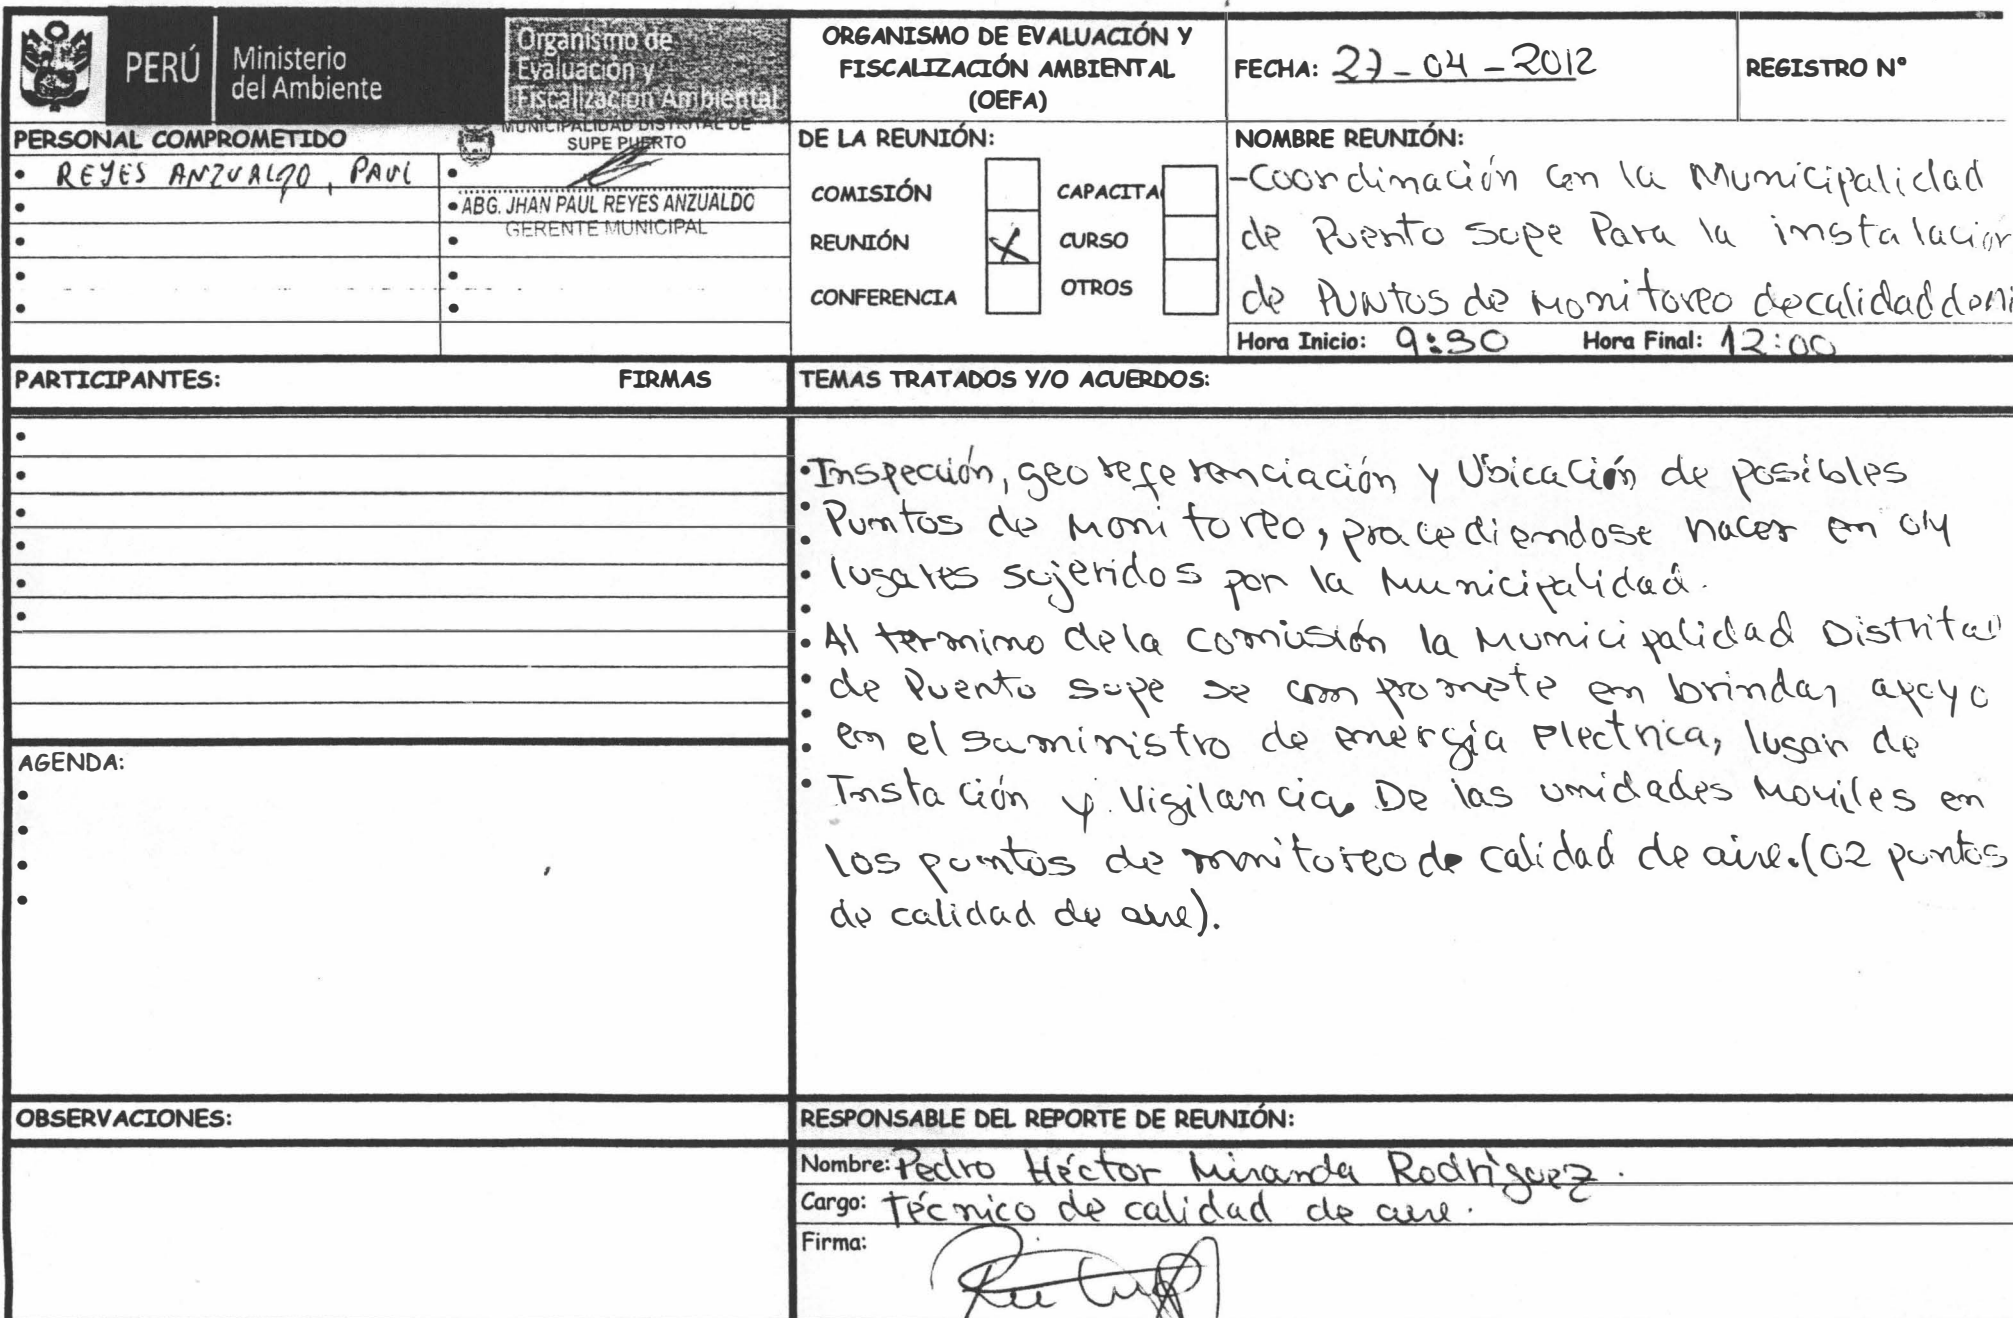 PERÚ
Ministerio
del Ambiente
Organismo de
Evaluación y
Fiscalización Ambiental
ORGANISMO DE EVALUACIÓN Y
FISCALIZACIÓN AMBIENTAL
(OEFA)
FECHA: 27-04-2012
REGISTRO N°
PERSONAL COMPROMETIDO
• REYES ANZUALDO, PAUL
MUNICIPALIDAD DISTRITAL DE
SUPE PUERTO
ABG. JHAN PAUL REYES ANZUALDO
GERENTE MUNICIPAL
DE LA REUNIÓN:
COMISIÓN
CAPACITA
REUNIÓN X
CURSO
CONFERENCIA
OTROS
NOMBRE REUNIÓN:
-Coordinación con la Municipalidad
de Puerto Supe Para la instalación
de Puntos de Monitoreo de calidad de
Hora Inicio: 9:30 Hora Final: 12:00
PARTICIPANTES: FIRMAS
TEMAS TRATADOS Y/O ACUERDOS:
• Inspección, georeferenciación y Ubicación de posibles
• Puntos de Monitoreo, procediendose hacer en 04
• lugares sujeridos por la Municipalidad.
• Al termino de la comisión la Municipalidad Distrital
• de Puerto supe se compromete en brindar apoyo
• en el suministro de energía electrica, lugar de
• Instación y Vigilancia De las unidades Moviles en
los puntos de monitoreo de calidad de aire. (02 puntos
de calidad de aire).
AGENDA:
OBSERVACIONES:
RESPONSABLE DEL REPORTE DE REUNIÓN:
Nombre: Pedro Héctor Miranda Rodríguez.
Cargo: Técnico de calidad de aire.
Firma: